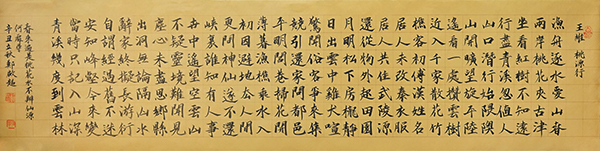 王維 桃源行
漁舟逐水愛山春
兩岸桃花夾古津
坐看紅樹不知遠
行盡青溪忽值人
山口潛行始隈隩
山開曠望旋平陸
遙看一處攢雲樹
近入千家散花竹
樵客初傳漢姓名
居人未改秦衣服
居人共住武陵源
還從物外起田園
月明松下房櫳靜
日出雲中雞犬喧
驚聞俗客爭來集
競引還家問都邑
平明閭巷掃花開
薄暮漁樵乘水入
初因避地去人間
更問神仙遂不還
峽裏誰知有人事
世中遙望空雲山
不疑靈境難聞見
塵心未盡思鄉縣
出洞無論隔山水
辭家終擬長游衍
自謂經過舊不迷
安知峰壑今來變
當時只記入山深
青溪幾度到雲林
春來遍是桃花水不辨仙源
何處尋
辛丑立秋鄭啟超